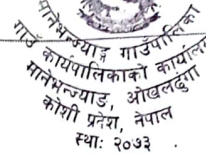 मानेभन्ज्याङ गाउँपालिका
गाउँ कार्यपालिकाको कार्यालय
मानेभन्ज्याङ, ओखलढुंगा
कोशी प्रदेश, नेपाल
स्था: २०७३